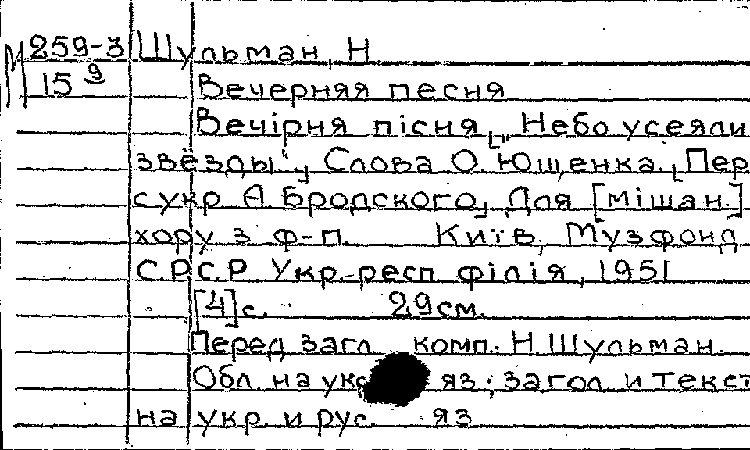 М 259-3 Шульман, Н
15 9 Вечерняя песня
Вечірня пісня [„Небо усеяли
звёзды"], Слова О. Ющенка. [Пер
с укр А. Бродского], Для [мішан.]
хору з ф-п. Київ, Музфонд
С.Р.С.Р Укр.-респ філія, 1951
[4] с. 29 см.
Перед загл комп. Н. Шульман
Обл. на яз; загол и текст
на укр. и рус. яз